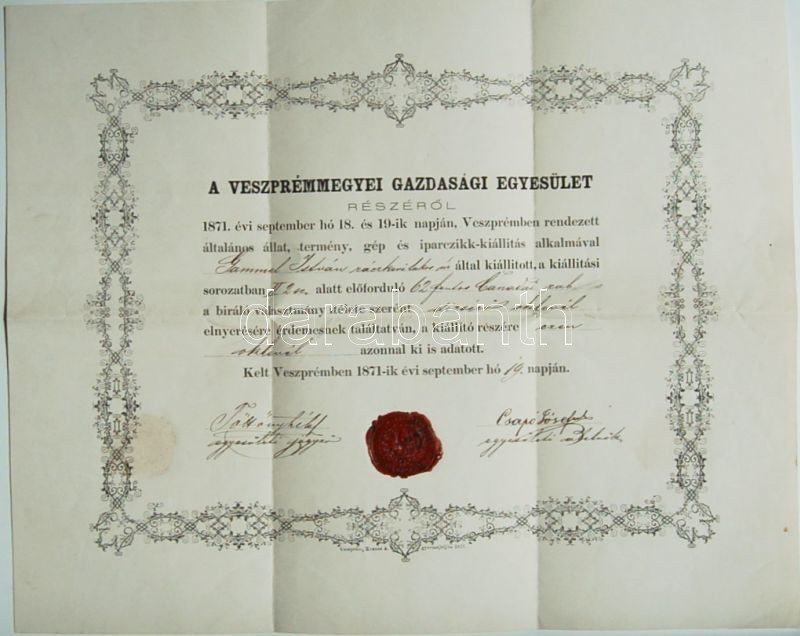 A VESZPRÉMMEGYEI GAZDASÁGI EGYESÜLET
RÉSZÉRŐL
1871. évi september hó 18. és 19-ik napján, Veszprémben rendezett
általános állat, termény, gép és iparczikk-kiállitás alkalmával
Gammel István által kiállitott, a kiállitási
sorozatban alatt előforduló 62 fontos
a biráló választmány itélete szerint oklevél
elnyerésére érdemesnek találtatván, a kiállitó részére ezen
oklevél azonnal ki is adatott.
Kelt Veszprémben 1871-ik évi september hó 19. napján.
Csapó József
egyesületi jegyző egyesületi
darabanth